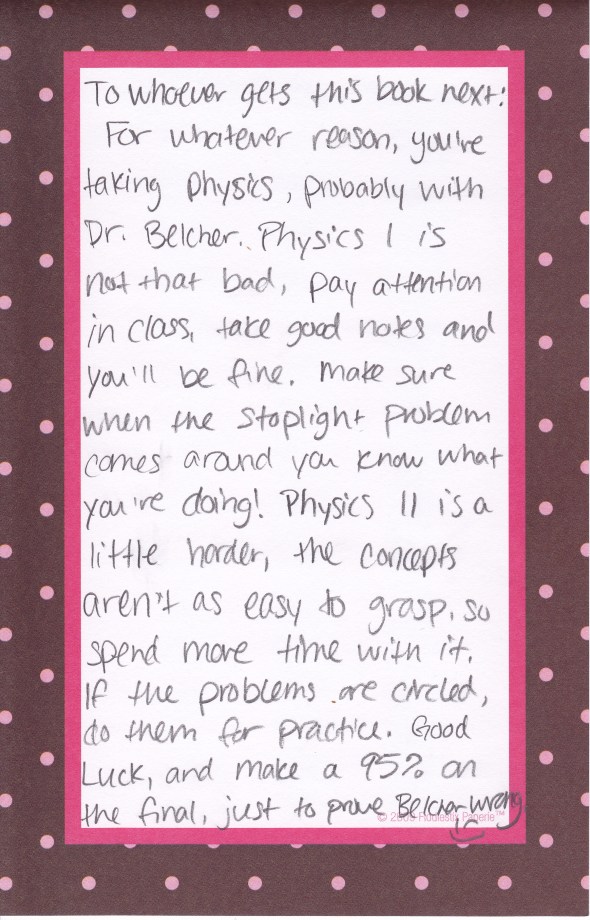 To whoever gets this book next:
For whatever reason, you're
taking physics, probably with
Dr. Belcher. Physics I is
not that bad, pay attention
in class, take good notes and
you'll be fine. Make sure
when the stoplight problem
comes around you know what
you're doing! Physics II is a
little harder, the concepts
aren't as easy to grasp, so
spend more time with it.
If the problems are circled,
do them for practice. Good
Luck, and make a 95% on
the final, just to prove Belcher wrong
© Fiddlestix Paperie™